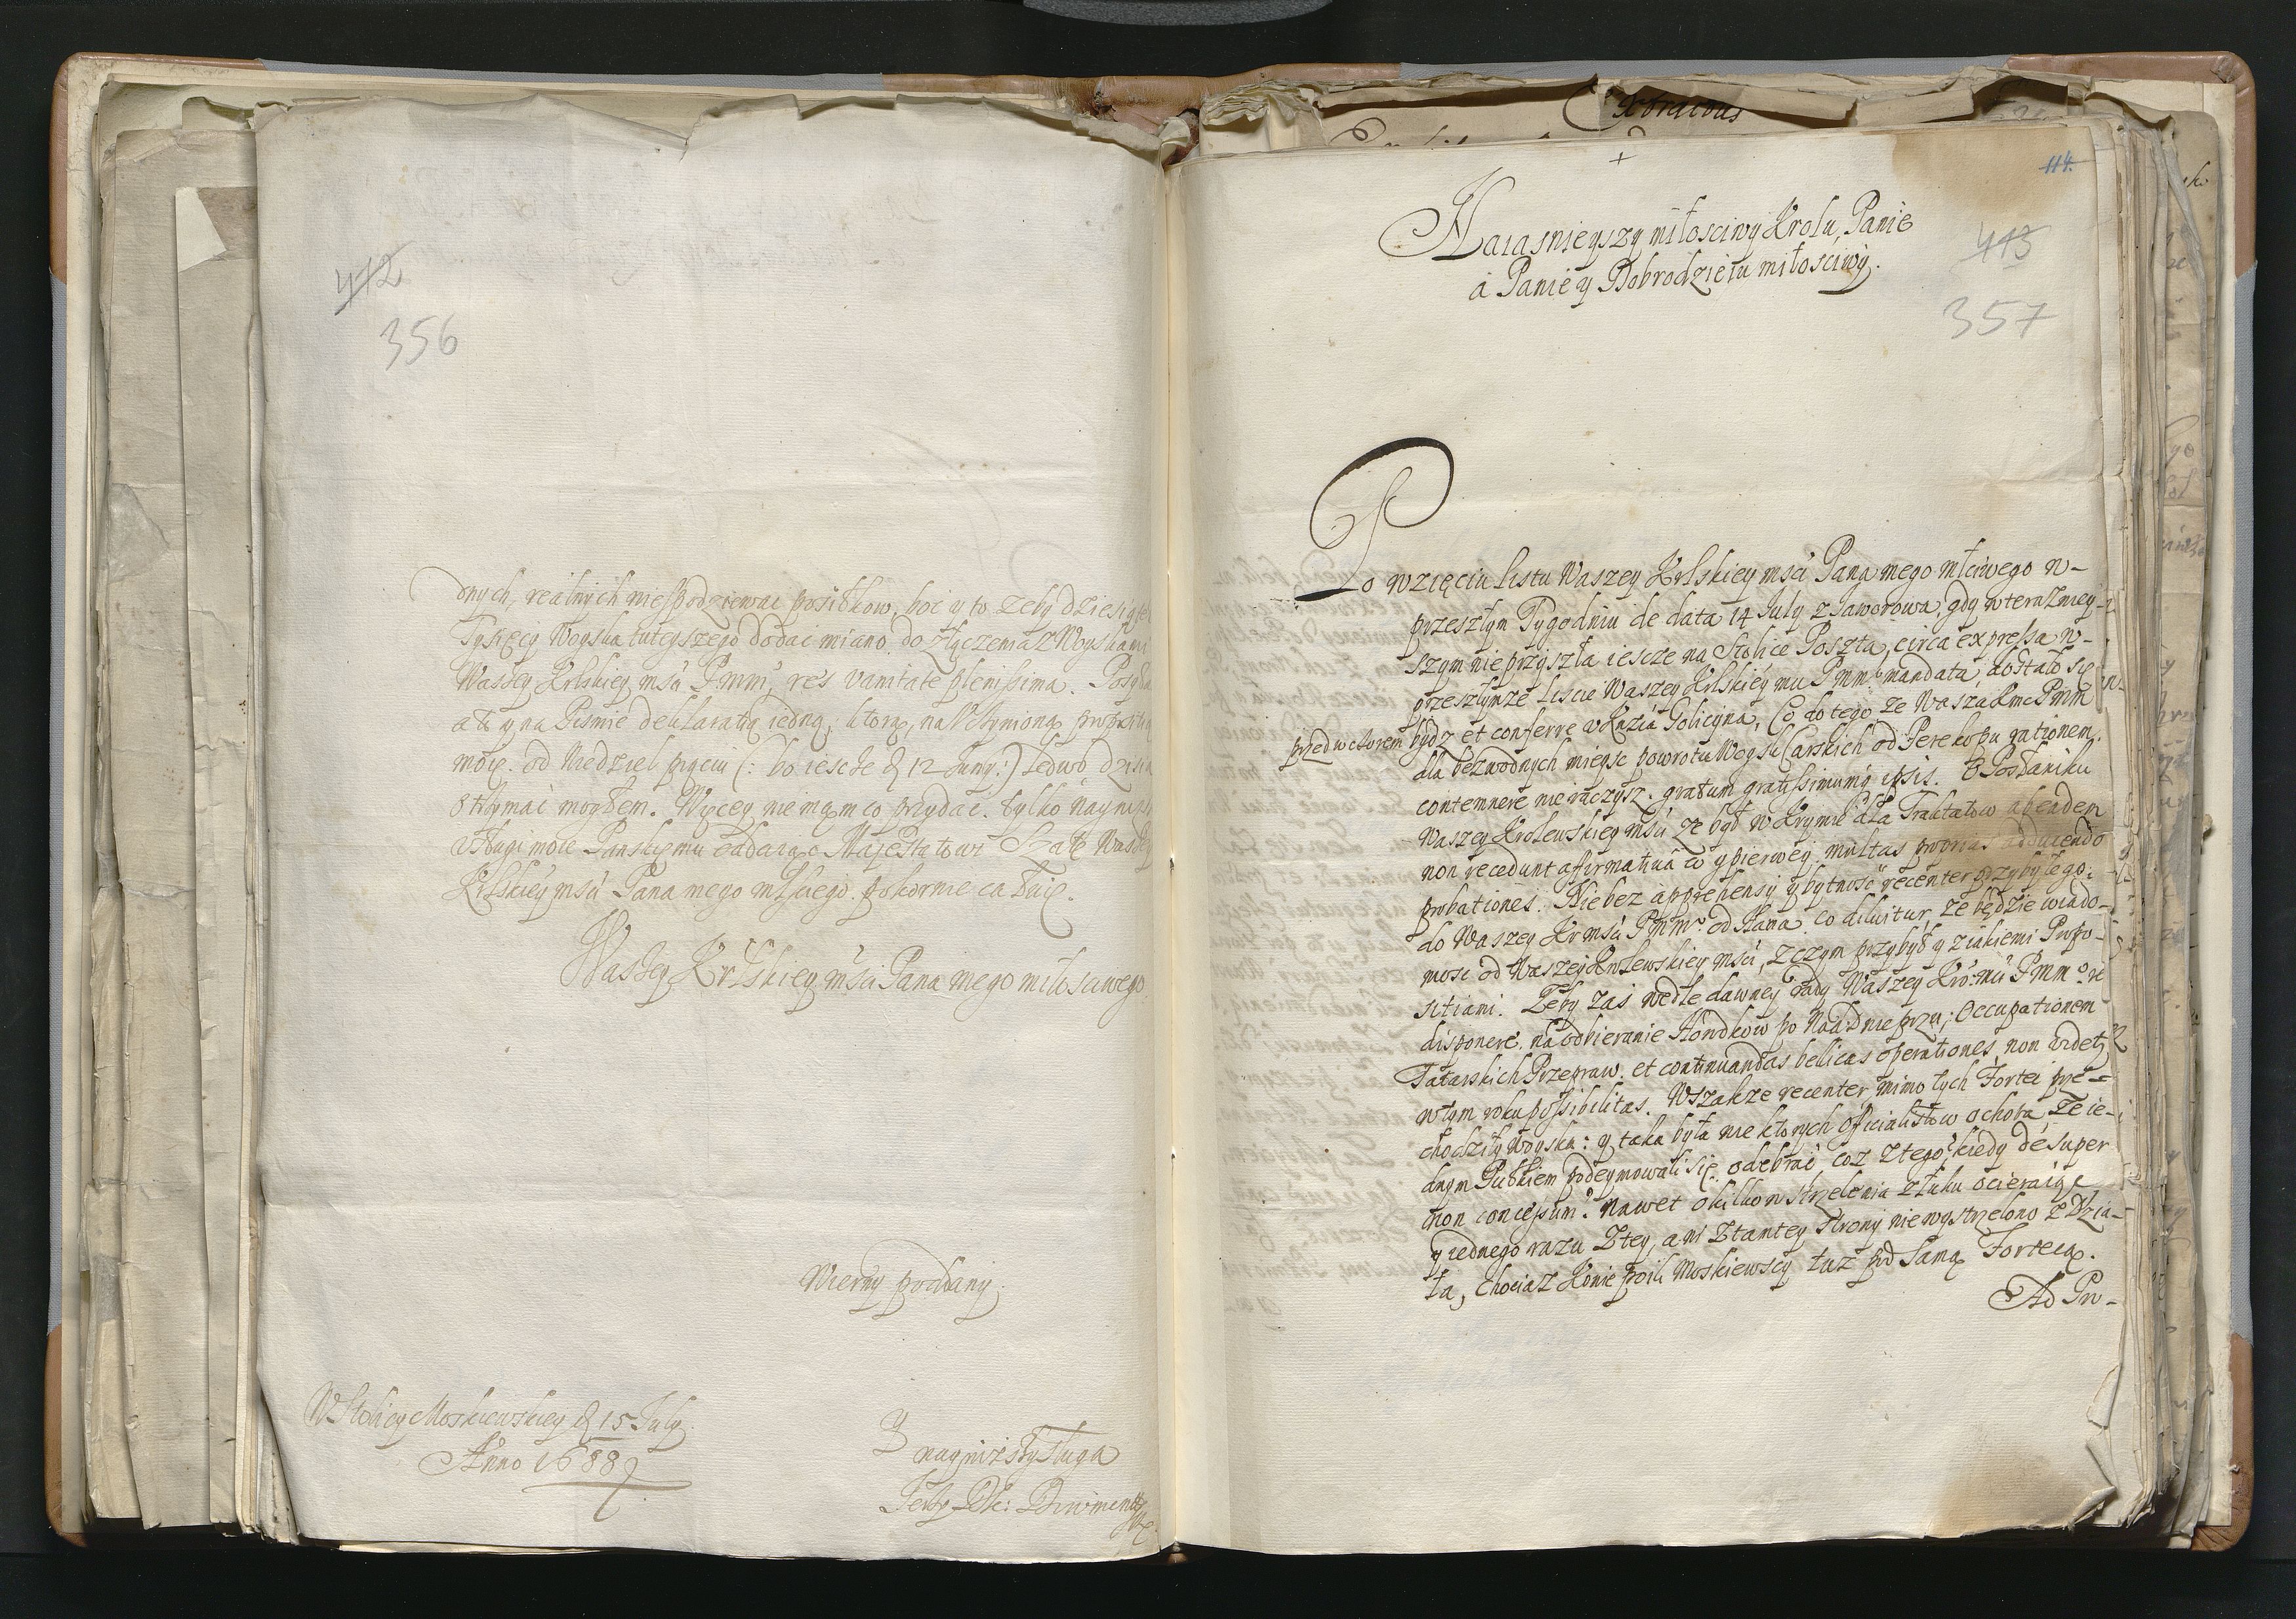 412
356
dnych, realnych niespodziewac posiłkow, boć y to zeby dziesięć
Tysięcy Woyska tuteyszego dodać miano do złączenia z Woyskami
Waszey Krlskiey mśći Pmm, res vanitate plenissima.
aż y na Pismie deklaratią iedną, ktorą, na Uczynioną
moię od Niedziel pięciu (: bo iescze d 12 Juny:) ledwo dzisia
otrzymać mogłem. Więcey nie mam co przydać, tylko
usługi moie Pańskiemu oddaiąc Majestatowi Waszey
Krlskiey mśći Pana mego młciego pokornie całuię.
Waszey Krlskiey mśći Pana mego miłosciwego
Wierny poddany
W Stolicy Moskiewskiey d 15 July
Anno 1688
y nayniższy sługa
Jerzy
Xbracous
114.
413
357
Naiasnieyszy miłosciwy Krolu, Panie
a Panie y Dobrodzieiu miłosciwy.
Po wzięciu listu Waszey Krlskiey mśći Pana mego młciwego w-
przeszłym Tygodniu de data 14 July z Jaworowa, gdy w teraźniey-
szym nie przyszła iescze na Stolice Poszta, circa expressa w-
przeszłymze liscie Waszey Krlskiey mći Pmm mandata, dostało się
przed wczorem bydz et conferre u Knzia Golicyna, Co do tego ze Wasza Kmć Pmm
dla bezwodnych mieysc powrotu Woysk Carskich od Perekopu rationem
contemnere nie raczysz, gratum gratissimumq ipsis. O Posłaniku
Waszey Krolewskiey mśći ze był w Krymie dla Traktatow
non recedunt affirmativa co y pierwey, multas adducendo
probationes. Nie bez apprehensij y bytność recenter przybyłego
do Waszey Kr mśći Pmm od Hana, co diluitur, ze będzie wiado-
mosc od Waszey Krolewskiey mśći, z czym przybył y z iakiemi Propo-
sitiami. Zeby zaś wedle dawney rady Waszey Pmm
disponere na odbieranie Horodkow po Nad Dnieprzu, Occupationem
Tatarskich Przepraw, et continuandas bellicas operationes, non videtz
w tym roku possibilitas. Wszakze recenter, mimo tych Fortec prze-
chodziły Woyska: y taka była niektorych Officialistow ochota, Ze ie-
dnym Pułkiem podeymowali się odebrać, coż z tego? kiedy desuper
non concessum? Nawet o kilkon strzelenia z łuku ocieraiąc
y iednego razu z tey, ani z tamtey strony nie wystrzelono z Dzia-
ła, chociaz Konie poili Moskiewscy tuż pod samą Fortecą.
Ad Pro-